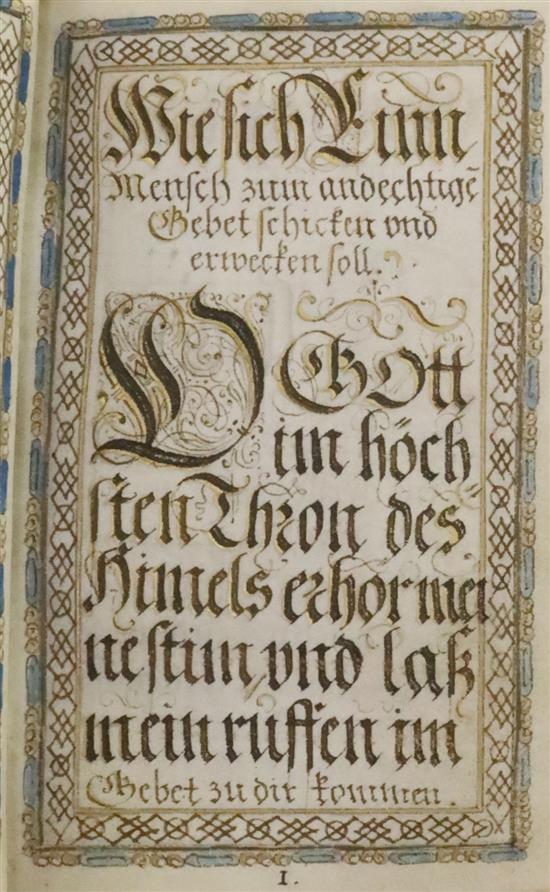 Wie sich Einn
Mensch zum andechtigē
Gebet schicken vnd
erwecken soll.
O GOtt
im höch
sten Thron des
Himels erhör mei
ne stim, vnd laß
mein ruffen im
Gebet zu dir kommen.
1.